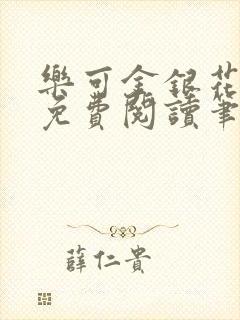 樂可金銀花
免費閱讀筆
薛仁貴